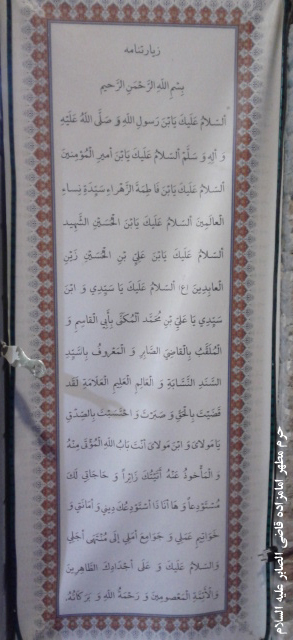 زیارتنامه
بِسْمِ اللهِ الرَّحْمَنِ الرَّحیمِ
اَلسَلامُ عَلَیكَ یَابْنَ رَسولِ اللهِ وَ صَلَّی اللهُ عَلَیْهِ
وَ الِهِ وَ سَلَّمْ اَلسَلامُ عَلَیكَ یَابْنَ أمیرِ المُؤمِنینَ
اَلسَلامُ عَلَیكَ یَابْنَ فاطِمَةَ الزَّهْراءِ سَیِّدَةِ نِساءِ
العالَمینَ اَلسَلامُ عَلَیكَ یَابْنَ الحُسَیْنِ الشَّهیدِ
اَلسَلامُ عَلَیكَ یَابْنَ عَلِیِّ بْنِ الحُسَیْنِ زَیْنِ
العابِدینَ (ع) اَلسَلامُ عَلَیْكَ یا سَیِّدِي وَ ابْنَ
سَیِّدِي یا عَلِيَّ بْنَ مُحَمَّد المُکَنَّی بِأَبِي القاسِمِ وَ
المُلَقَّبُ بِالْقاضِيِ الصّابِرِ وَ الْمَعْروفِ بِالسَّیِّدِ
السَّنَدِ النَّسّابَةِ وَ الْعالِمِ الْعَلیمِ الْعَلّامَةِ لَقَد
قَضَیْتَ بِالْحَقِّ وَ صَبَرْتَ وَ احْتَسَبْتَ بِالصِّدْقِ
یا مَولايَ وَ ابْنَ مَولايَ أنْتَ بابُ اللهِ المُؤْتَی مِنْهُ
وَ الْمَأْخوذُ عَنْهُ أَتَیْتُكَ زائِراً وَ حاجاتي لَكَ
مُسْتَوْدِعاً وَ ها أنَا ذا أسْتَوْدِعُكَ دینِي وَ أمانَتِي وَ
خَواتِیمَ عَمَلِي وَ جَوامِعَ أمَلِي إلَی مُنْتَهَی أجَلِي
وَالسَّلامُ عَلَیْكَ وَ عَلَی أجْدادِكَ الطّاهِرینَ
وَ الْأَئِمَّةِ الْمَعْصومینَ وَ رَحْمَةُ اللهِ وَ بَرَکاتُهُ
حرم مطهر امامزاده قاضی الصابر علیه السلام